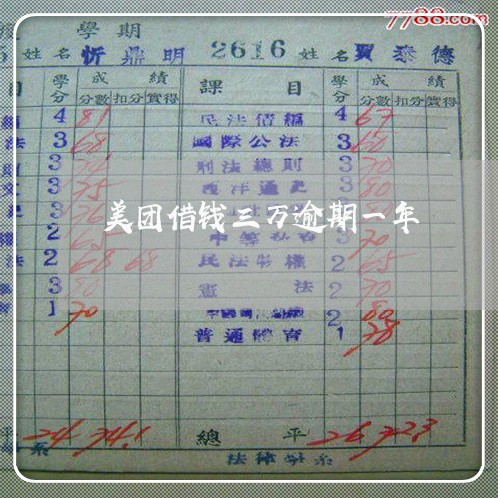 7788.com
學期
姓名 忻鼎明 2616 姓名 賈泰德
目 學分 成績 課目 學分 成績
分數 扣分 實得 分數 扣分 實得
4 81 民法債編 4 67
法 3 68 國際公法 3 60
3 刑法總則 3 70
3 75 西洋通史 3 80
美团借钱三万逾期一年
2 65 3 70
法 2 68 68 民法物權 2 65
3 80 憲法 2 70
1 70 2 80
普通體育 1 78
平 24 74.1 總平 26 72.3
系 法律學系